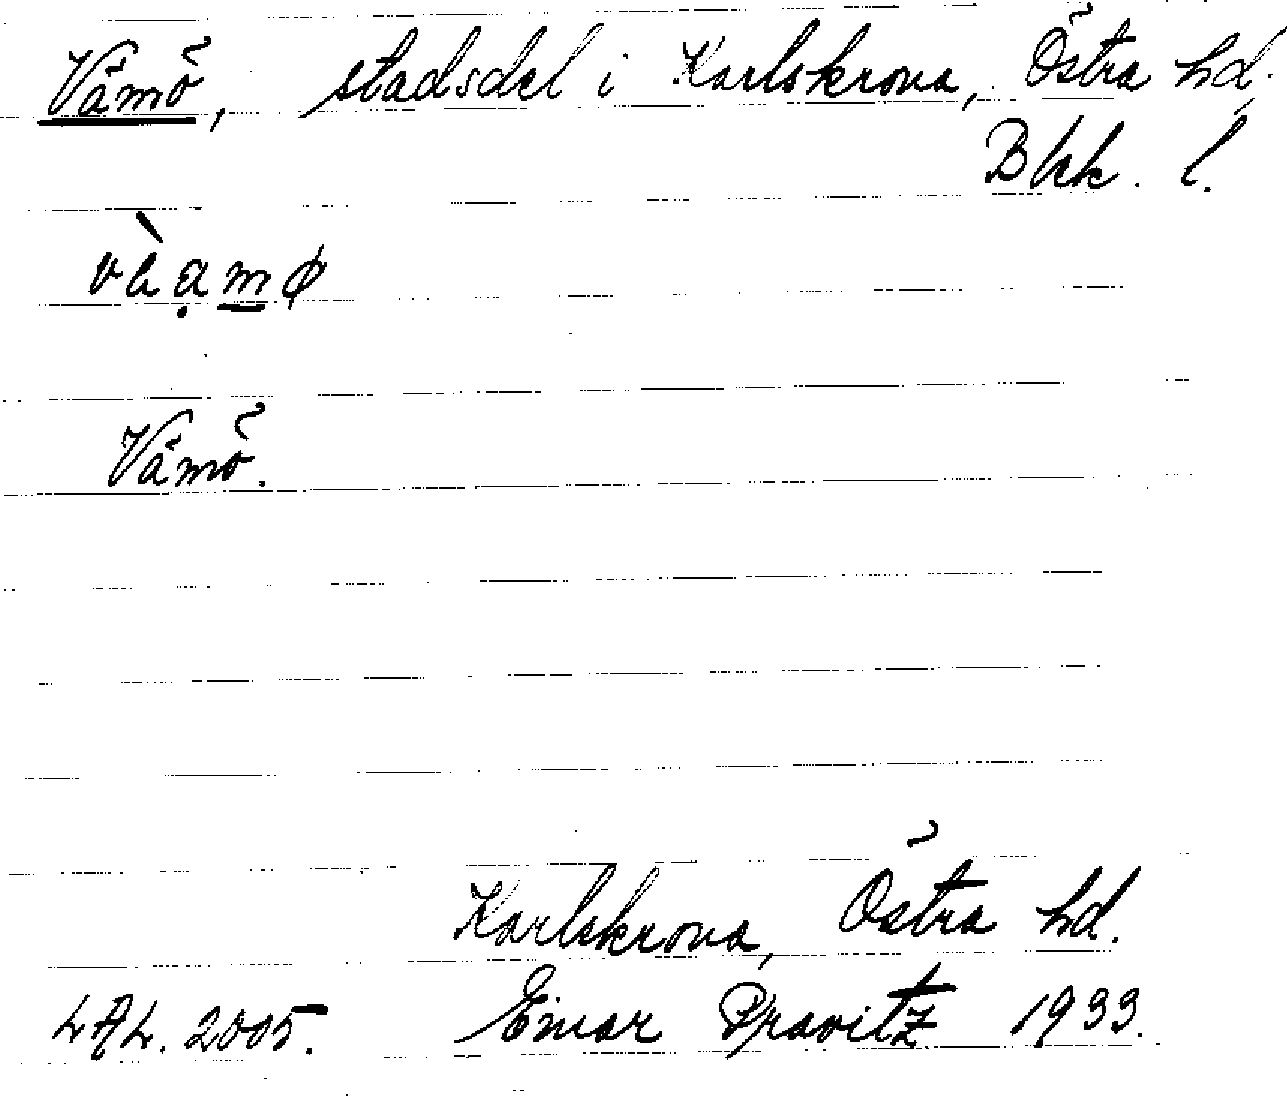 Vämö, stadsdel i Karlskrona, Östra hd.
Blek. l.
Vämö.
Karlskrona, Östra hd.
LAL. 2005. Einar 1933.